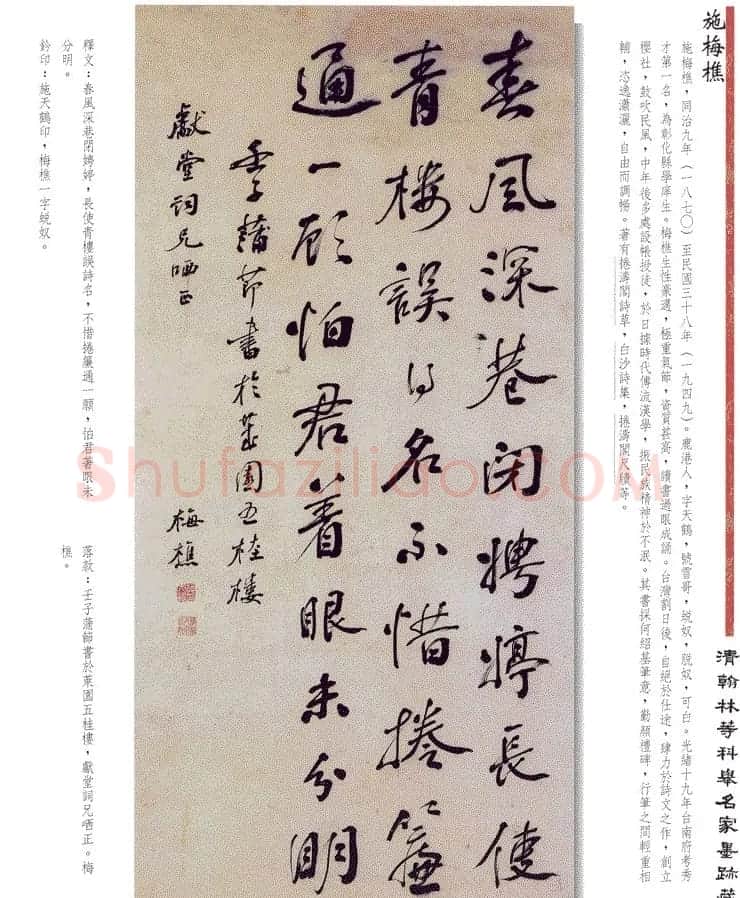 施梅樵
施梅樵，同治九年（一八七〇）至民國三十八年（一九四九）。鹿港人，字天鶴，號雪哥，蛻奴，脱奴，可白。光緒十九年台南府考秀
才第一名，為彰化縣學庠生。梅樵生性豪邁，極重氣節，資質甚高，讀書過眼成誦。台灣割日後，自絕於仕途，肆力於詩文之作，創立
櫻社，鼓吹民風，中年後多處設帳授徒，於日據時代傳流漢學，振民族精神於不泯。其書採何紹基筆意，勤顏禮碑，行筆之間輕重相
輔，恣逸瀟灑，自由而調暢。著有捲濤閣詩草，白沙詩集，捲濤閣尺牘等。
清翰林等科舉名家墨跡
春風深巷閉娉婷長使
青樓誤得名不惜捲簾
通一顧怕君着眼未分明
壬子蒲節書於菜園五桂樓
獻堂詞兄哂正
梅樵
釋文：春風深巷閉娉婷，長使青樓誤詩名，不惜捲簾通一顧，怕君著眼未
分明。
鈐印：施天鶴印，梅樵一字蛻奴。
落款：壬子蒲節書於萊園五桂樓，獻堂詞兄哂正。梅
樵。
Shufaziliao.COM